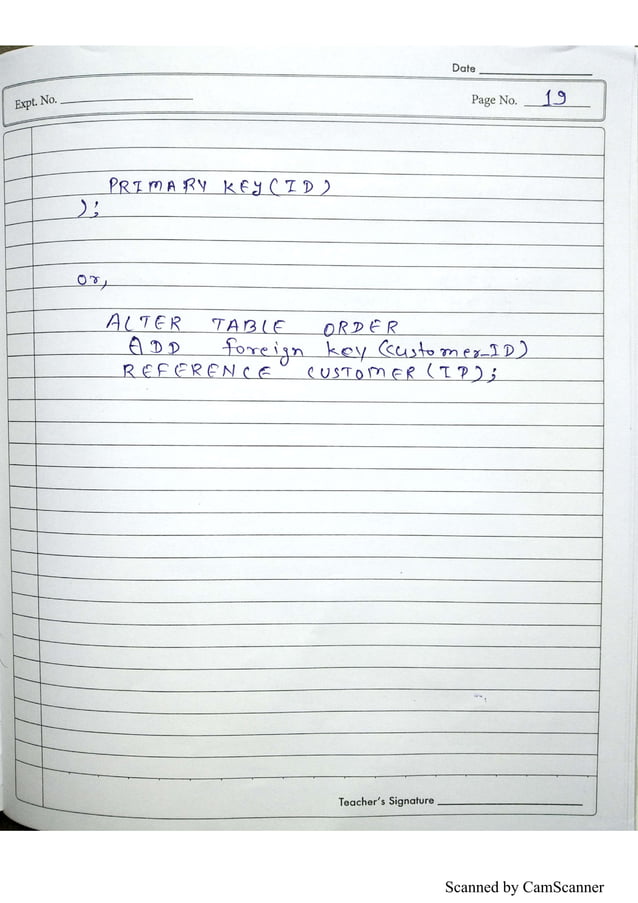 Date
Expt. No.
Page No. 19
PRIMARY KEY(ID)
);
or,
ALTER TABLE ORDER
ADD foreign key (customer_ID)
REFERENCE CUSTOMER(ID);
Teacher's Signature
Scanned by CamScanner